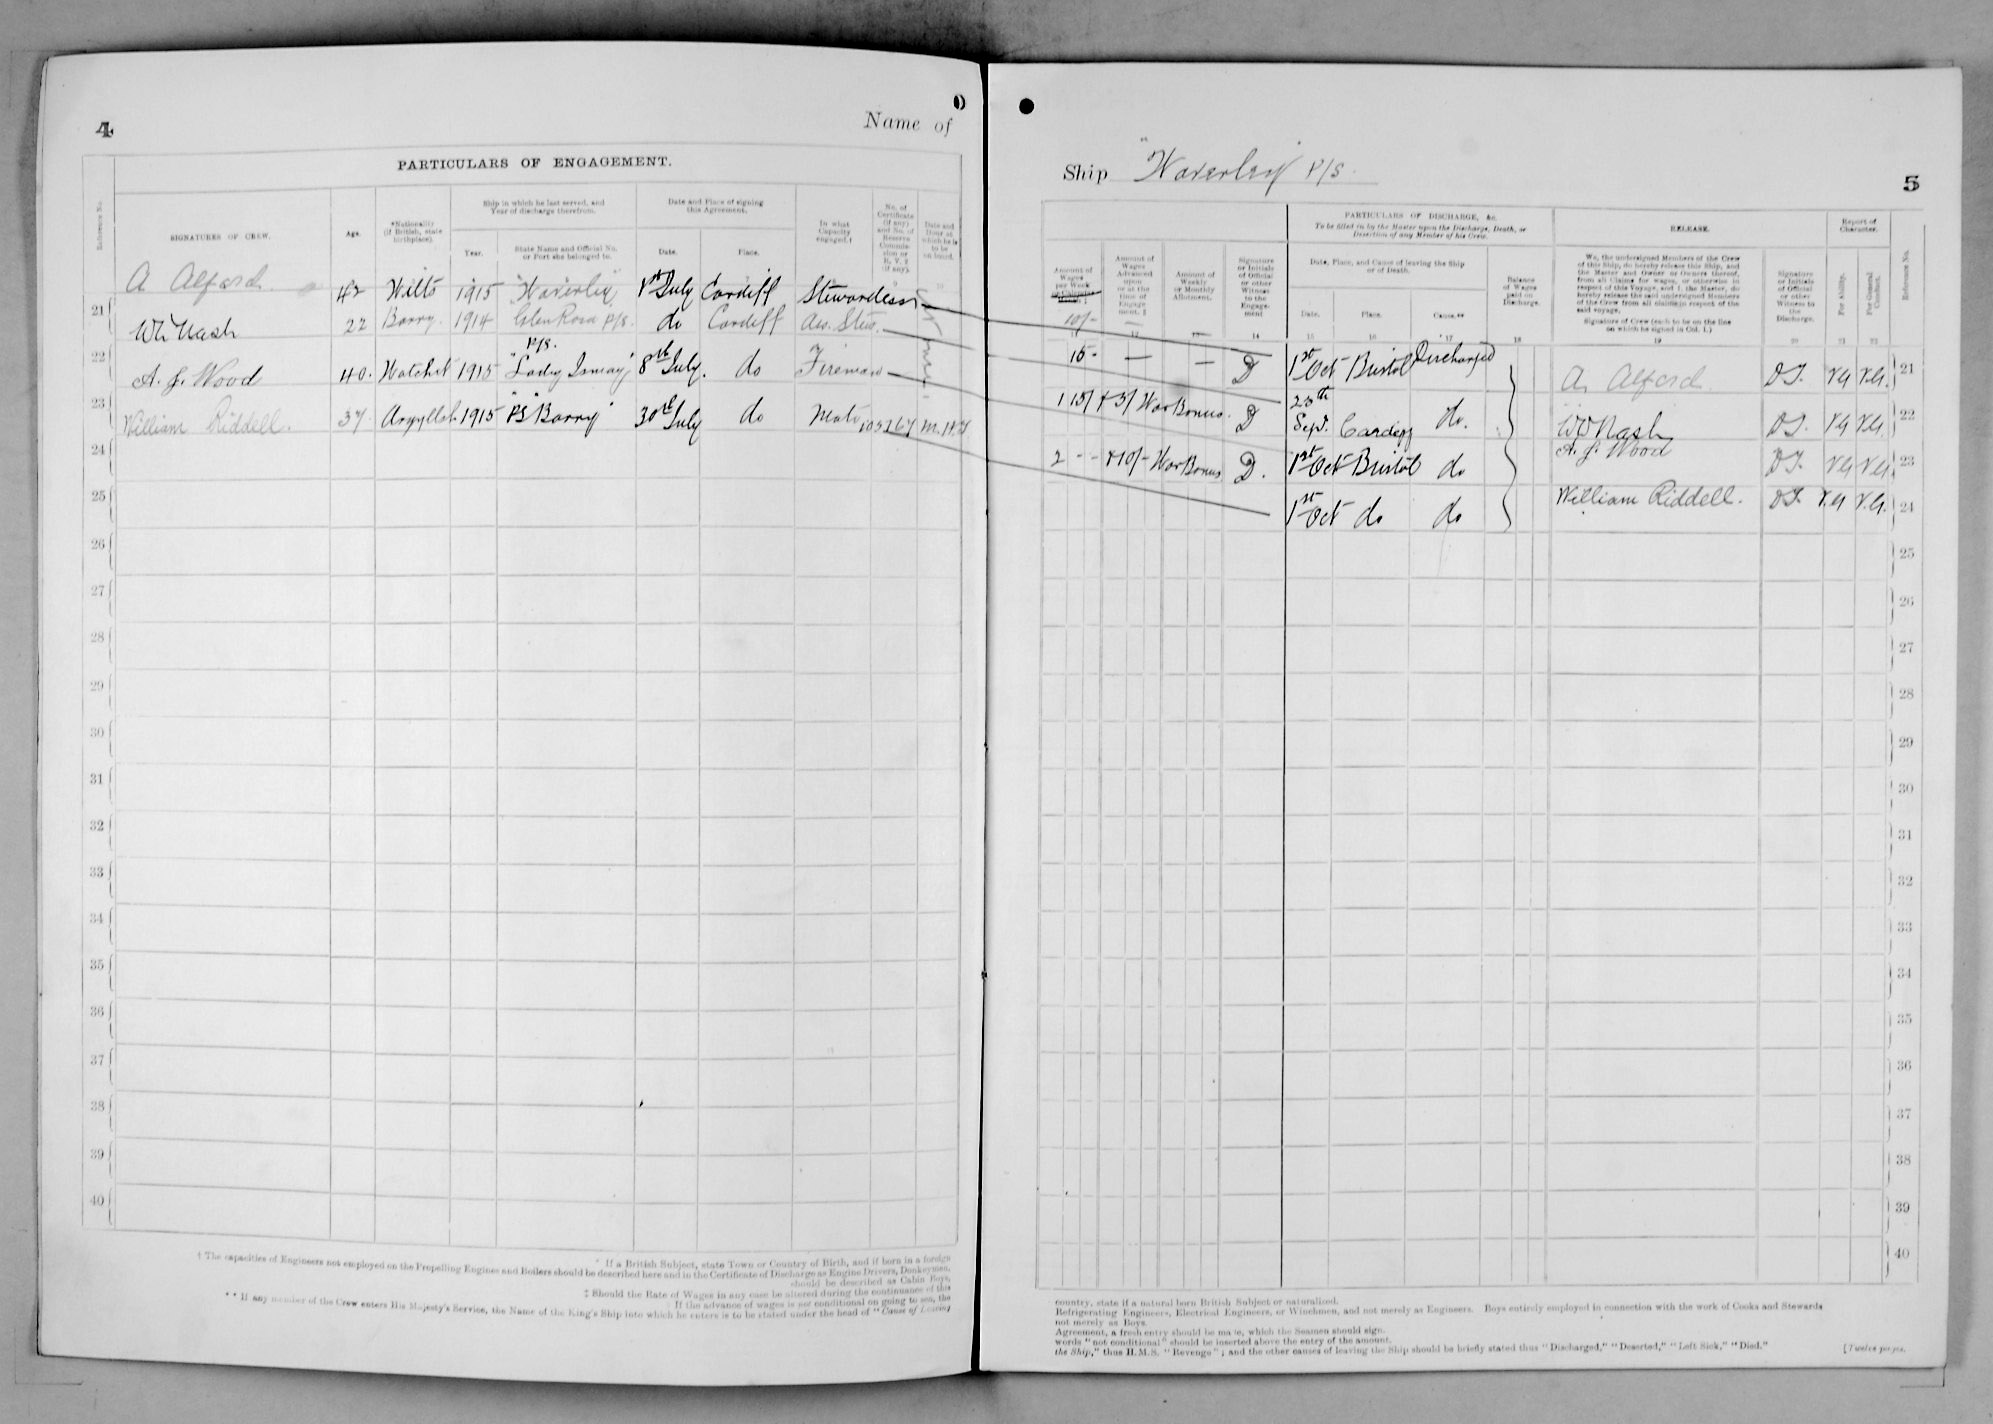 4
Name of
PARTICULARS OF ENGAGEMENT.
Reference No.
SIGNATURES OF CREW.
Age.
*Nationality
(if British, state
birthplace).
Ship in which he last served, and
Year of discharge therefrom.
Year.
State Name and Official No.
or Port she belonged to.
Date and Place of signing
this Agreement.
Date.
Place.
In what
Capacity
engaged.†
No. of
Certificate
(if any)
and No. of
Reserve
Commis-
sion or
R. V. 2
(if any).
Date and
Hour at
which he is
to be
on board.
A Alford 42 Wilts 1915 "Waverley" 1st July Cardiff Stewardess
21
W Nash 22 Barry 1914 Glen Rosa P/S. do Cardiff As. Stew.
22
P/S.
A. J. Wood 40. Watchet 1915 "Lady Ismay" 8th July. do Fireman
23
William Riddell. 37. Argyllsh 1915 "PS Barry" 30th July do Mate 105267 M.H.T
24
25
26
27
28
29
30
31
32
33
34
35
36
37
38
39
40
* If a British Subject, state Town or Country of Birth, and if born in a foreign
† The capacities of Engineers not employed on the Propelling Engines and Boilers should be described here and in the Certificate of Discharge as Engine Drivers, Donkeymen,
should be described as Cabin Boys,
‡ Should the Rate of Wages in any case be altered during the continuance of this
If the advance of wages is not conditional on going to sea, the
** If any member of the Crew enters His Majesty's Service, the Name of the King's Ship into which he enters is to be stated under the head of "Cause of Leaving
Ship "Waverley" P/S.
5
Amount of
Wages
per Week
or Calendar
Month
Amount of
Wages
Advanced
upon
or at the
time of
Engage
ment. ‡
Amount of
Weekly
or Monthly
Allotment.
Signature
or Initials
of Official
or other
Witness
to the
Engage-
ment
PARTICULARS OF DISCHARGE, &c.
To be filled in by the Master upon the Discharge, Death, or
Desertion of any Member of his Crew.
Date, Place, and Cause of leaving the Ship
or of Death.
Date.
Place.
Cause.**
Balance
of Wages
paid on
Discharge.
RELEASE.
We, the undersigned Members of the Crew
of this Ship, do hereby release this Ship, and
the Master and Owner or Owners thereof,
from all Claims for Wages, or otherwise in
respect of this Voyage, and I, the Master, do
hereby release the said undersigned Members
of the Crew from all claims in respect of the
said voyage.
Signature of Crew (each to be on the line
on which he signed in Col. 1.)
Signature
or Initials
of Official
or other
Witness to
the
Discharge.
Report of
Character.
For Ability.
For General
Conduct.
Reference No.
10/- —
14 15 16 17 18 19 20 21 22
15 - — — D 1st Oct Bristol Discharged A. Alford VG VG. 21
1 15/ + 3/ War Bonus. D 25th Sept. Cardiff do. W Nash VG VG. 22
2 - - + 10/- War Bonus D. 1st Oct Bristol do A. J. Wood VG VG. 23
1st Oct do do William Riddell. V.G V.G. 24
25
26
27
28
29
30
31
32
33
34
35
36
37
38
39
40
country, state if a natural born British Subject or naturalized.
Refrigerating Engineers, Electrical Engineers, or Winchmen, and not merely as Engineers. Boys entirely employed in connection with the work of Cooks and Stewards
not merely as Boys.
Agreement, a fresh entry should be made, which the Seamen should sign.
words "not conditional" should be inserted above the entry of the amount.
the Ship," thus H.M.S. "Revenge"; and the other causes of leaving the Ship should be briefly stated thus "Discharged," "Deserted," "Left Sick," "Died."
[Twelve pages.